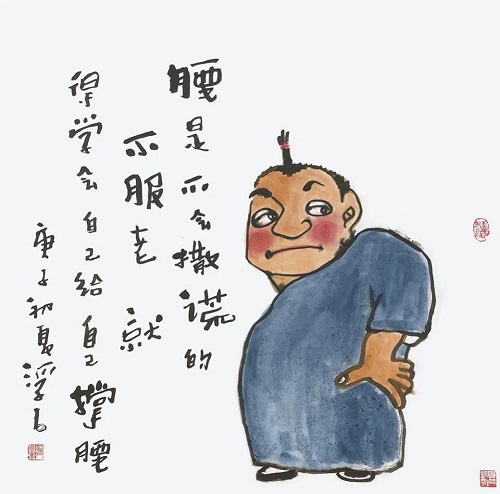 腰是不会撒谎的
不服老 就
得学会自己给自己撑腰
庚子初夏